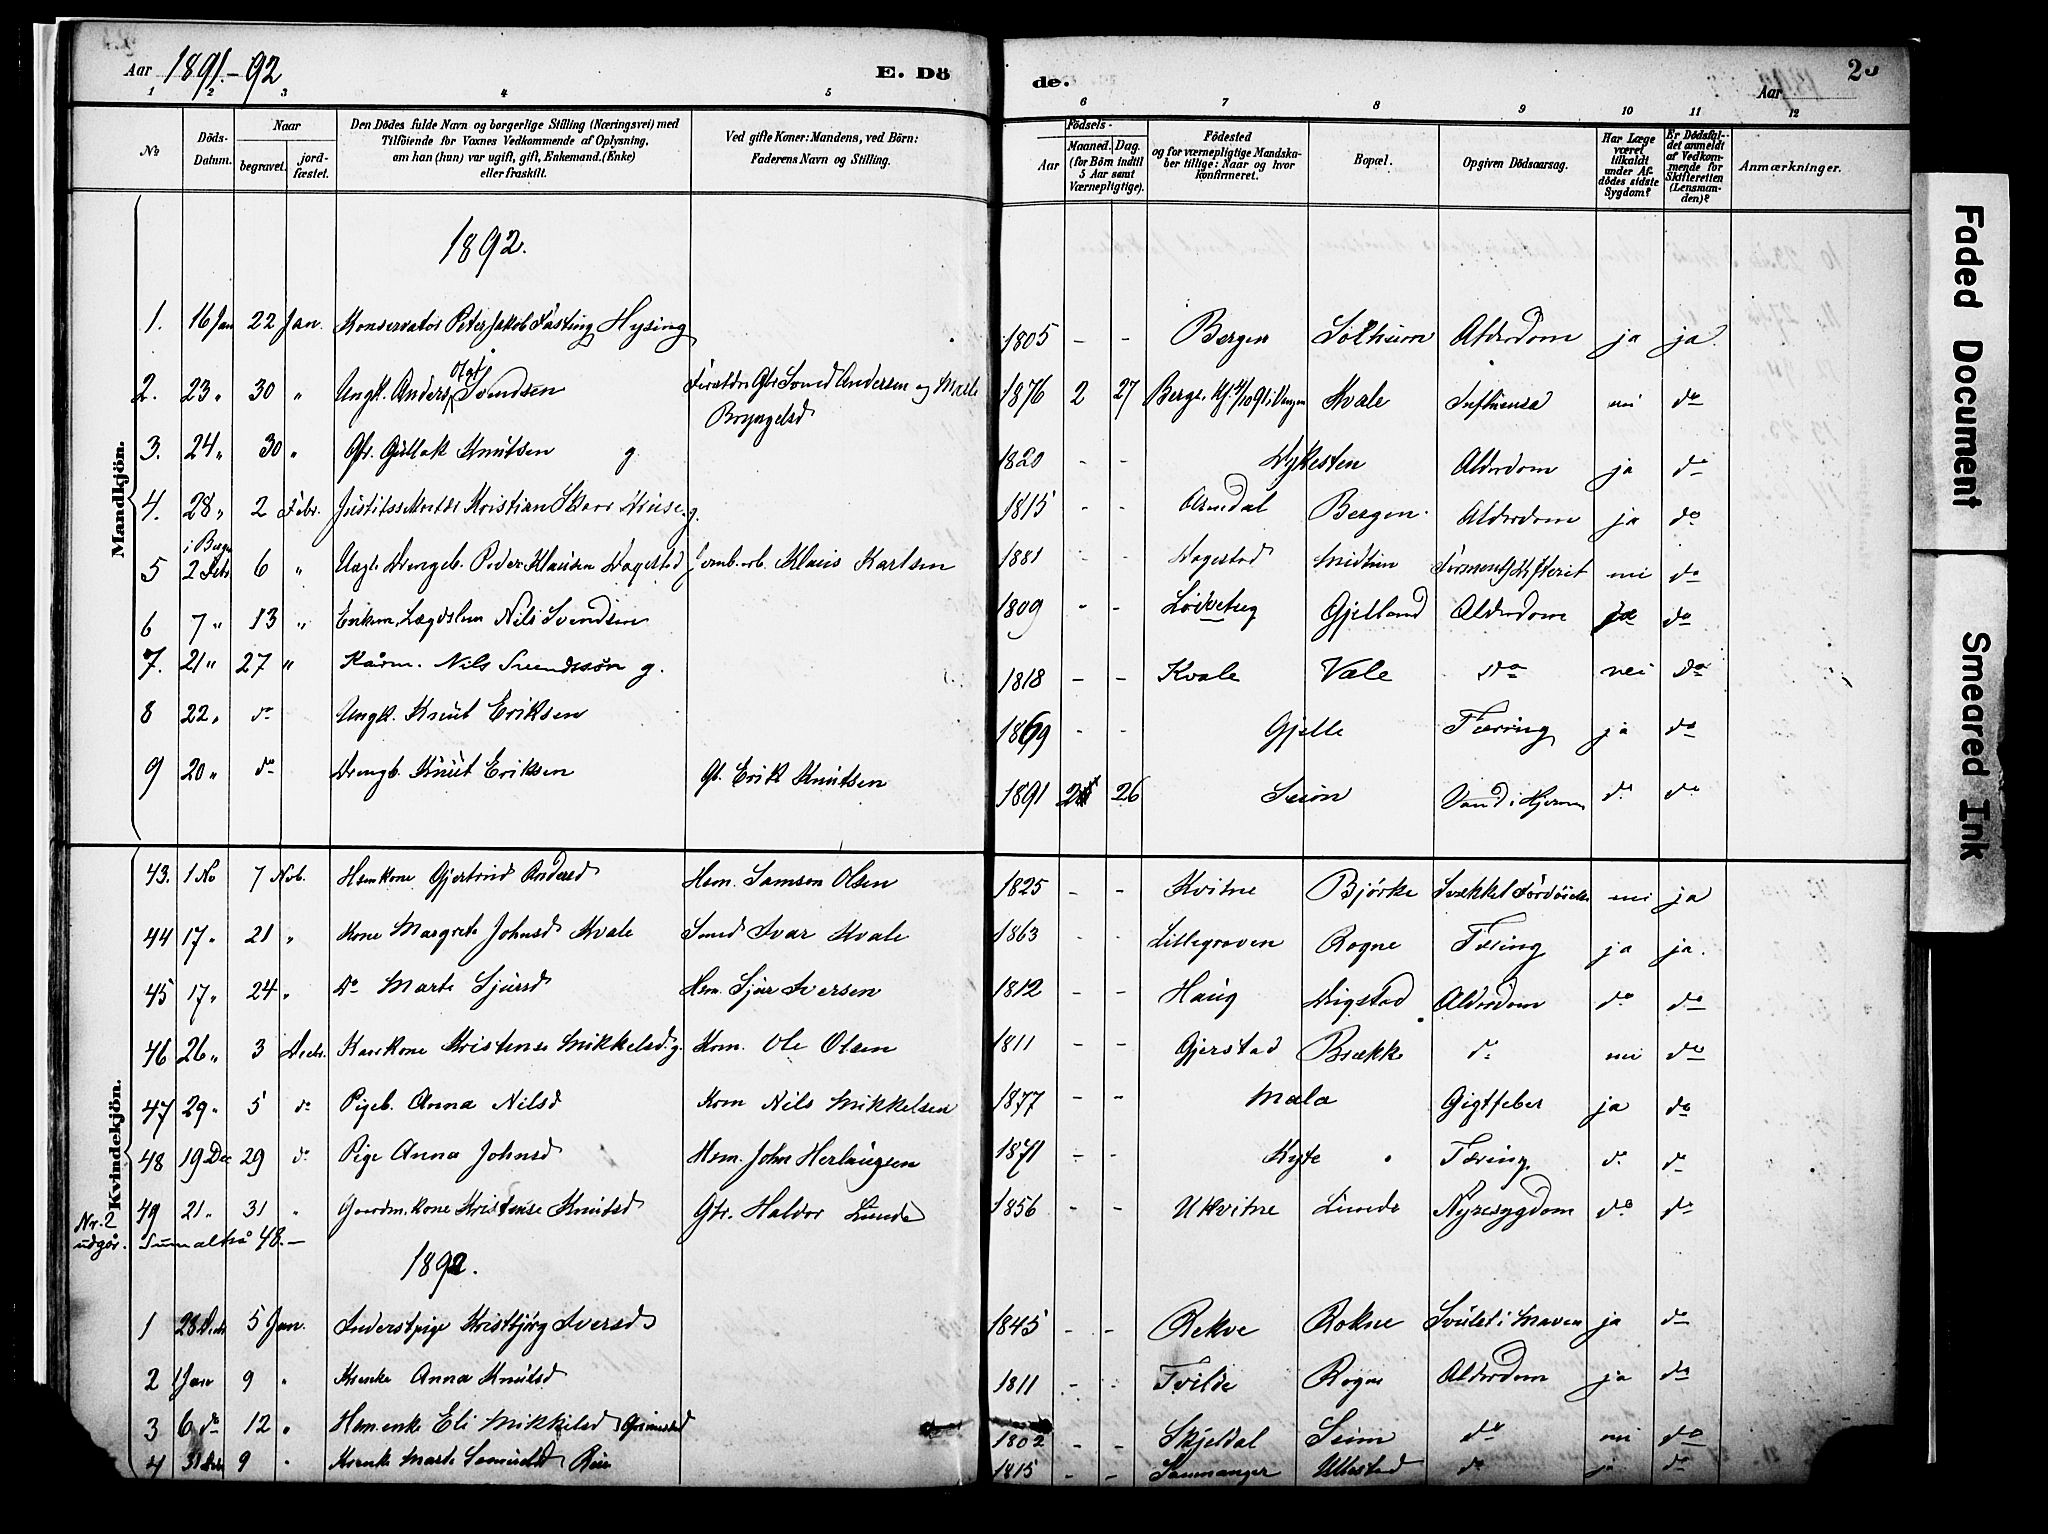 Aar 1891-92 E. Döde. Aar 23
1 2 3 4 5 6 7 8 9 10 11 12
No
Döds-Datum.
Naar begravet. jordfæstet.
Den Dödes fulde Navn og borgerlige Stilling (Næringsvei) med Tilföiende for Voxnes Vedkommende af Oplysning, om han (hun) var ugift, gift, Enkemand, (Enke) eller fraskilt.
Ved gifte Koner: Mandens, ved Börn: Faderens Navn og Stilling.
Födsels- Aar Maaned. Dag. (for Börn indtil 5 Aar samt Værnepligtige).
Födested og for værnepligtige Mandskaber tillige: Naar og hvor konfirmeret.
Bopæl.
Opgiven Dödsaarsag.
Har Læge været tilkaldt under Afdödes sidste Sygdom?
Er Dödsfaldet anmeldt af Vedkommende for Skifteretten (Lensmanden)?
Anmærkninger.
Mandkjön.
1892.
1. 16 Jan 22 Jan. Konservator Peter Jakob Fasting Hysing 1805 - - Bergen Solheim Alderdom ja ja.
2. 23 " 30 " Ungk. Anders Olai Svendsen Svend Andersen og Bryngelsd 1876 2 27 Kvale Influensa nei do
3. 24 " 30 " Gullak Knutsen g. 1820 - - Dykesten Alderdom ja do
4. 28 " 2 Febr. Kristian g. 1815 - - Arendal Bergen. Alderdom ja do
i Berg
5 2 Feb 6 " Drengeb. Peder Klausen Dagestad Klaus Karlsen 1881 - - Dagestad Midtun nei do
6 7 " 13 " Enkem. Lægdslem Nils Svendsen 1809 - - Gjelland Alderdom ja do
7. 21 " 27 " Kårm. Nils Svendssøn g. 1818 - - Kvale Væle do nei do
8 22 " do Ungk. Knut Eriksen 1869 - - Gjelle Tæring ja do
9 20 " do Drengb. Knut Eriksen Gb. Erik Knutsen 1891 26 Vand i Hjernen do do
Kvindekjön.
43. 1 No 7 Nob. Hsmkone Gjertrud Andersd Hsm. Samson Olsen 1825 - - Kvitne Bjørke Svækket Fordöielse nei ja
44 17 " 21 " Kone Margrete Johnsd Kvale Smed Ivar Kvale 1863 - - Lillegraven Rogne Tæring ja ja.
45 17 " 24 " Do Marte Sjursd Hsm. Sjur Iversen 1812 - - Haug Digstad Alderdom do do
46 26 " 3 Decbr. Kaarkone Kristense Mikkelsd. g. Kom. Ole Olsen 1811 - - Gjerstad Brække do nei do
47 29 " 5 do Pigeb. Anna Nilsd Kom Nils Mikkelsen 1877 - - Mala Gigtfeber ja do
48 19 Dec 29 do Pige Anna Johnsd Hsm. John Herlaugsen 1871 - - Kyte Tæring do do
49 21 " 31 " Gaardm.kone Kristense Knutsd Gbr. Haldor Lunde 1856 - - Ukvitne Lunde Nyresygdom do do
Nr. 2 udgår. Sum altså 48.-
1892.
1 28 Decb 5 Jan. Inderstpige Kristbjørg Iversd 1845 - - Rekve Rokne Svulst i Maven ja do
2 1 Jan 9 " Anna Knutsd 1811 - - Tvilde Rogne Alderdom ja do
3 6 do 12 " Hsm.enke Eli Mikkelsd Grimestad 1802 - - Skjeldal Seim do nei do
4 31 Dec 9 " Marte 1815 - - Samnanger Ullestad do ja do
Faded Document
Smeared Ink